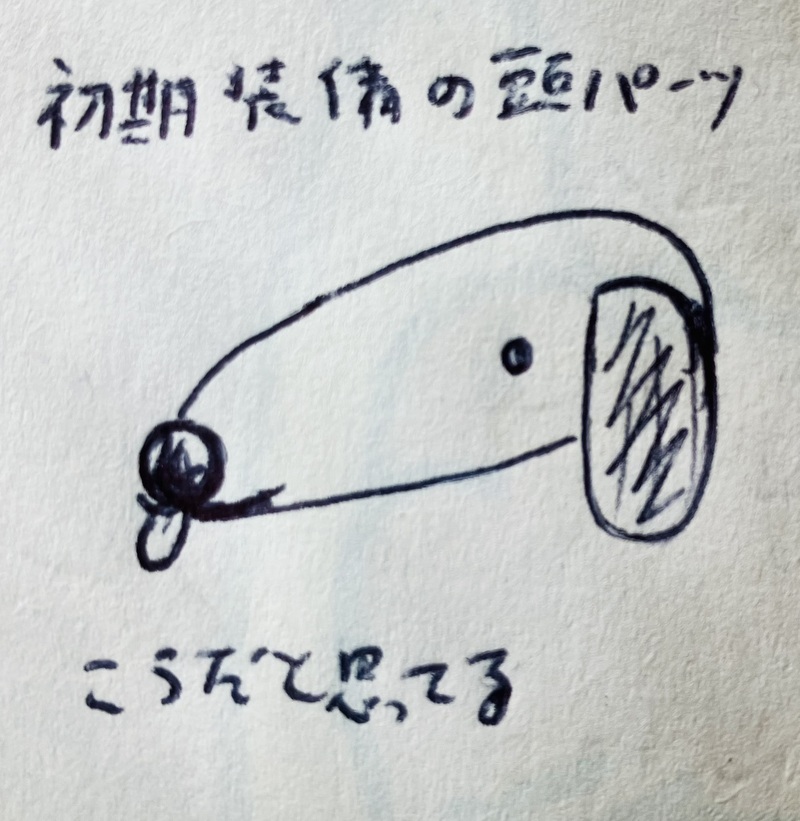 初期装備の頭パーツ
こうだと思ってる